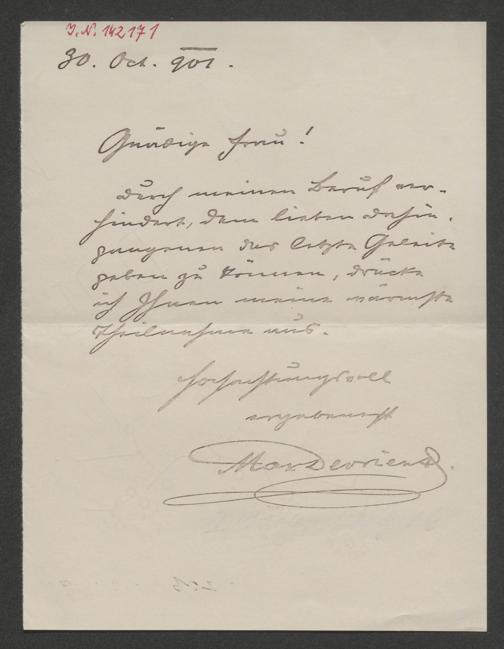 I. N. 142171
30. Oct. 901.
Gnädige Frau!
Durch meinen Beruf ver-
hindert, dem lieben Dahin-
gangenen das letzte Geleite
geben zu können, drücke
ich Ihnen meine wärmste
Theilnahme aus.
Hochachtungsvoll
ergebenst
Max Devrient.